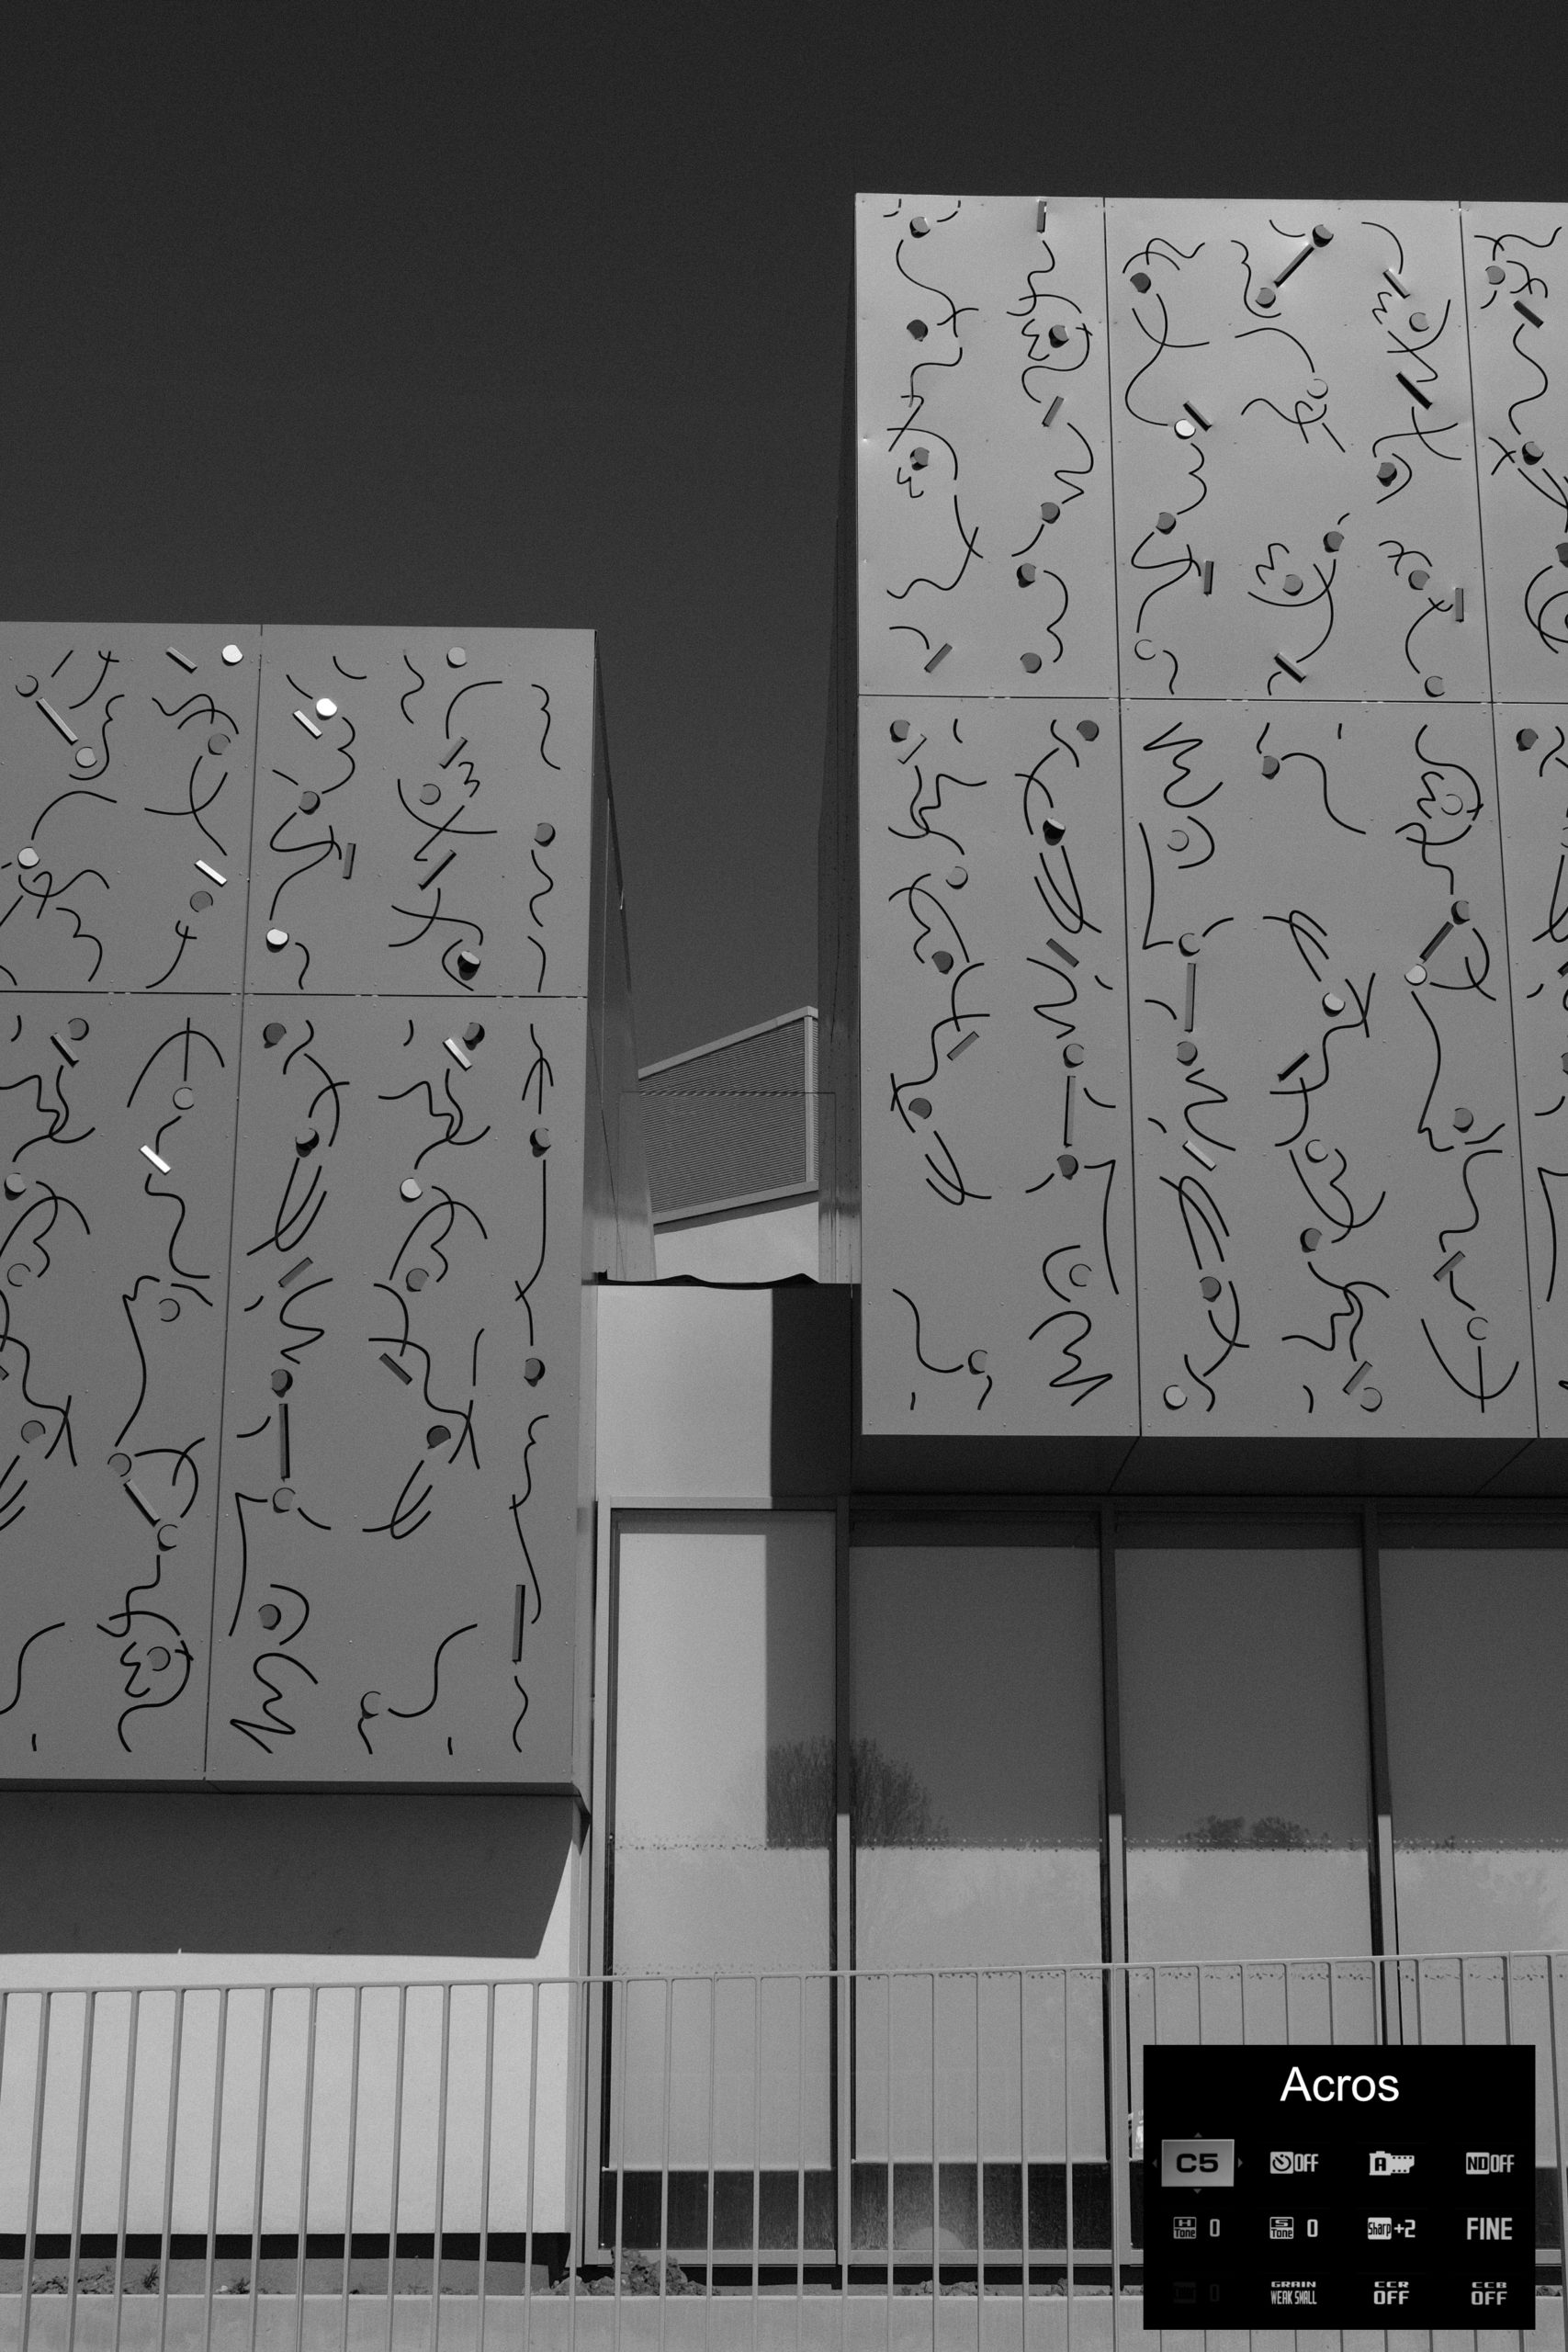 Acros
C5 OFF A ND OFF
H Tone 0 S Tone 0 Sharp +2 FINE
0 GRAIN WEAK SMALL CCR OFF CCB OFF